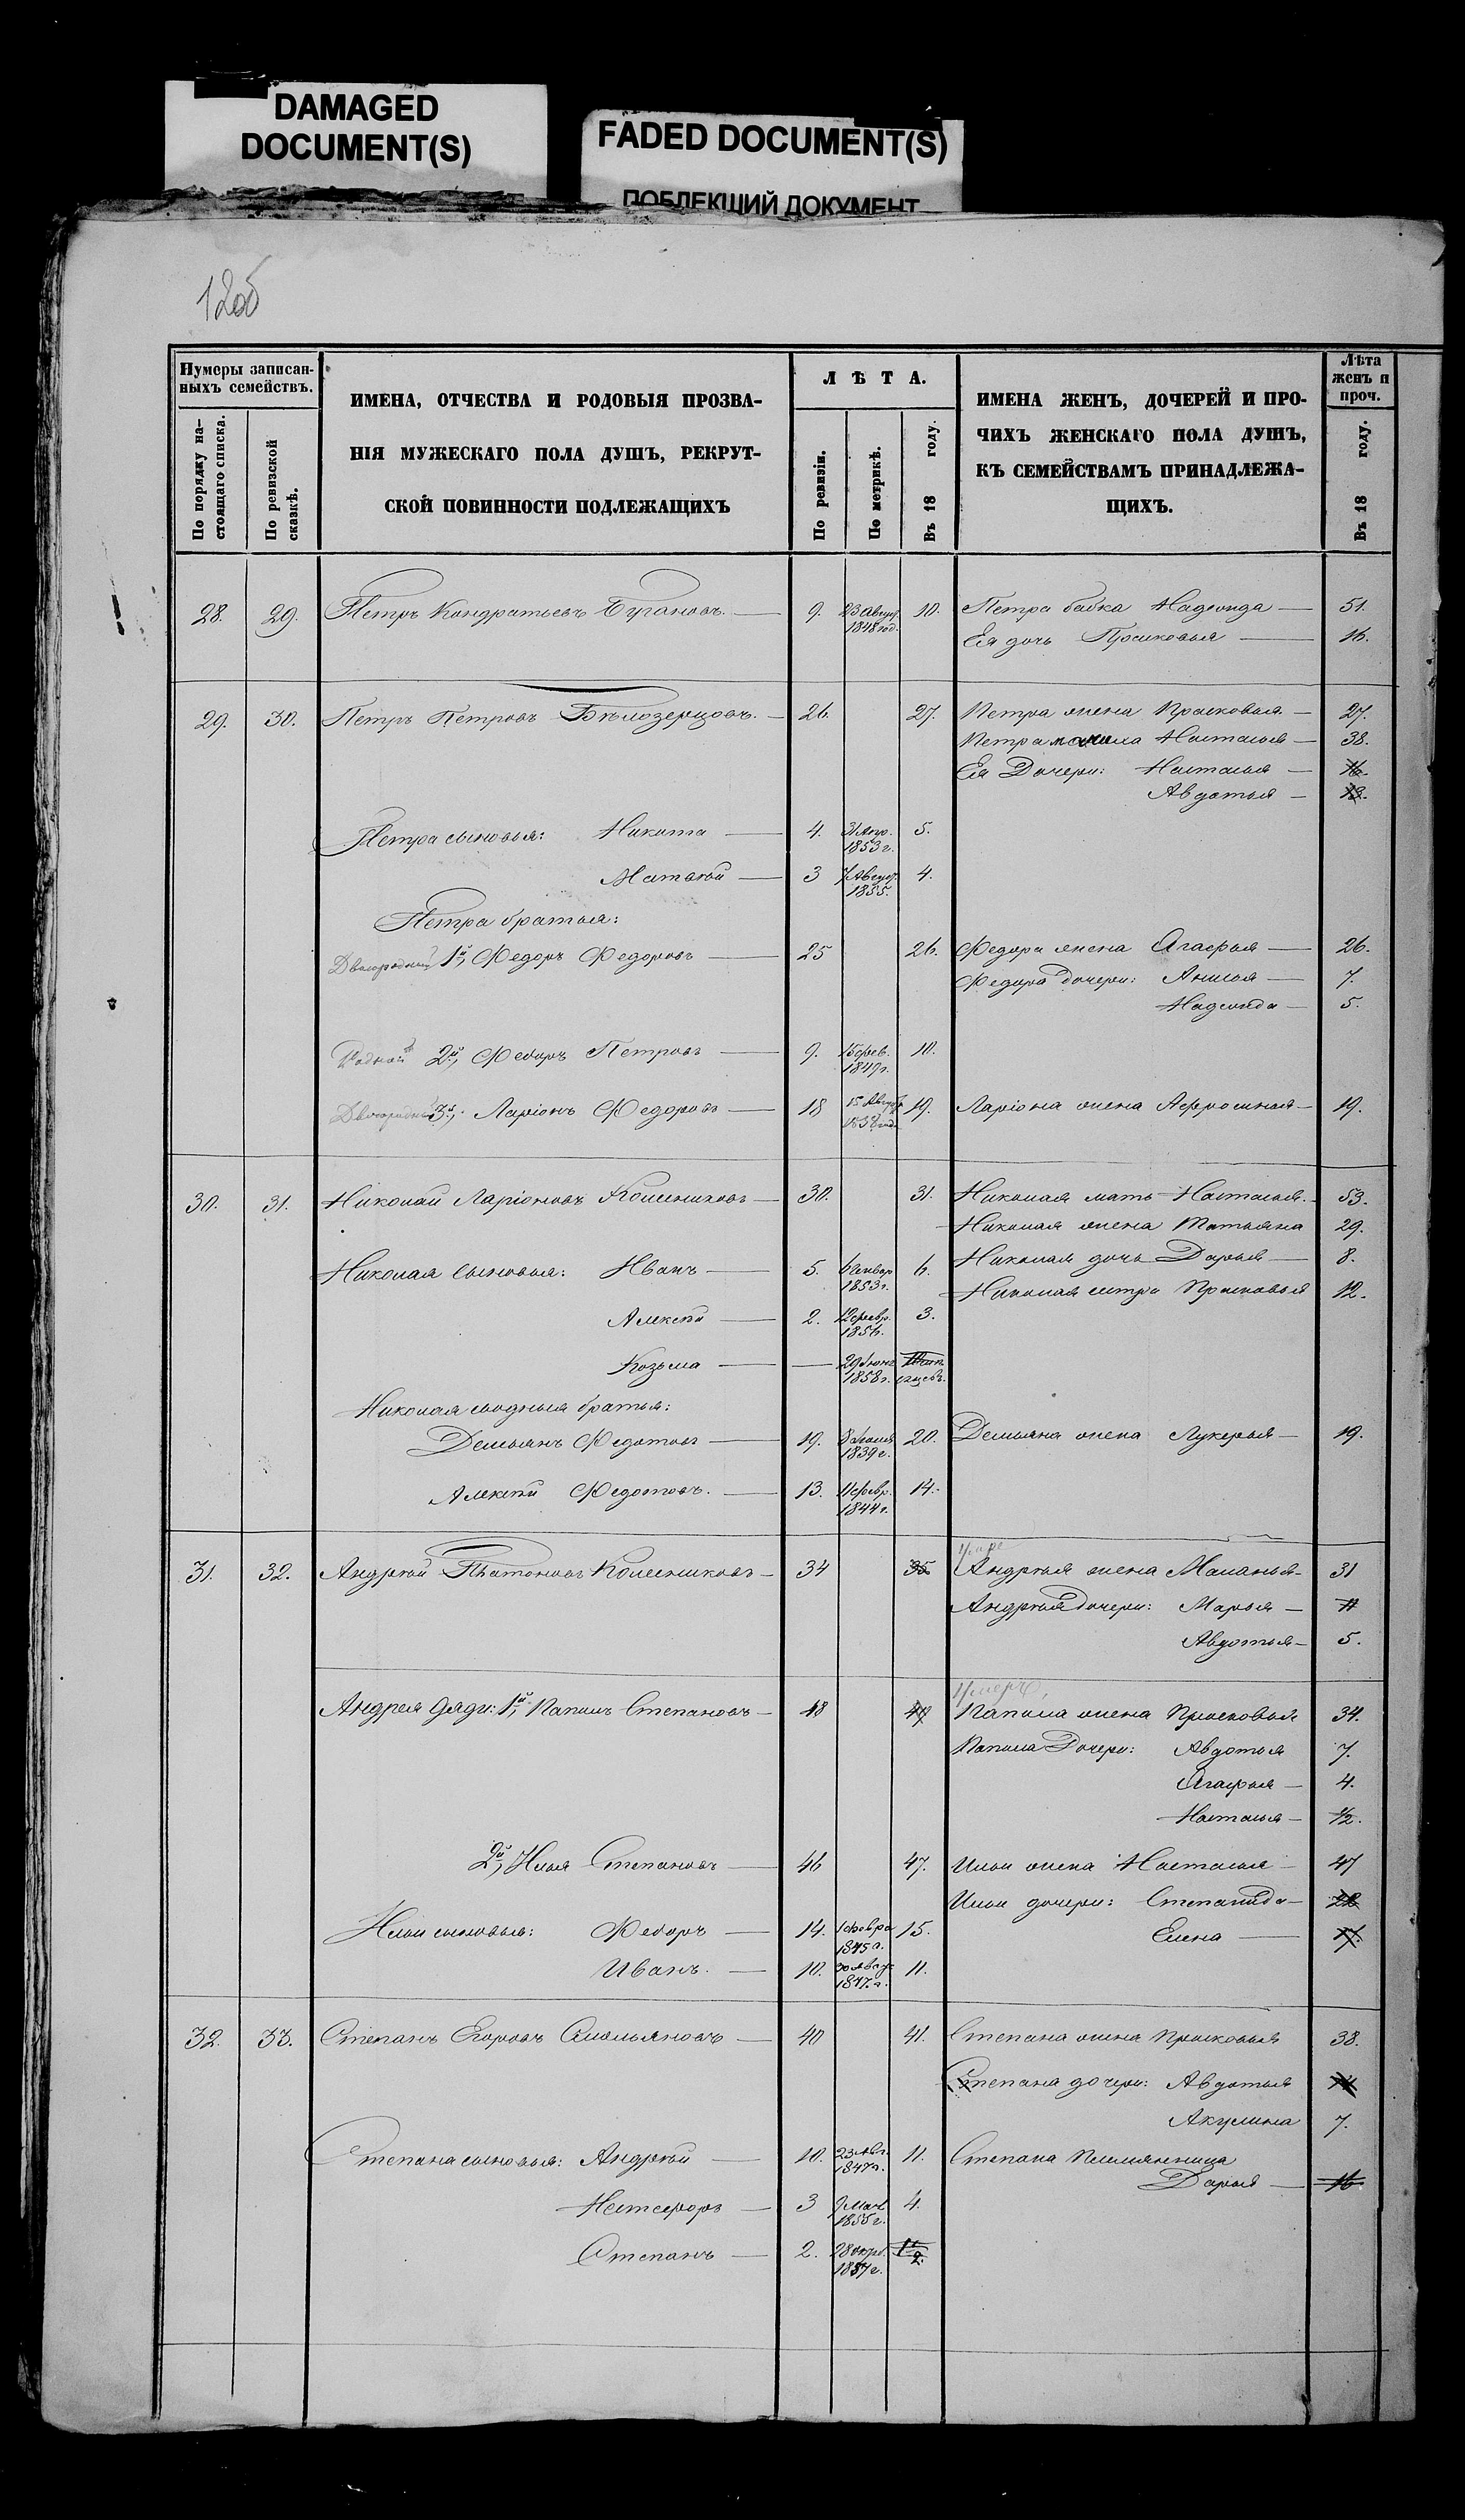 DAMAGED
DOCUMENT(S)
FADED DOCUMENT(S)
ПОБЛЕКШИЙ ДОКУМЕНТ
12об
Нумеры записан-
ныхъ семействъ.
По порядку на-
стоящаго списка.
По ревизской
сказкѣ.
ИМЕНА, ОТЧЕСТВА И РОДОВЫЯ ПРОЗВА-
НІЯ МУЖЕСКАГО ПОЛА ДУШЪ, РЕКРУТ-
СКОЙ ПОВИННОСТИ ПОДЛЕЖАЩИХЪ
Л Ѣ Т А.
По ревизіи.
По метрикѣ.
Въ 18 году.
ИМЕНА ЖЕНЪ, ДОЧЕРЕЙ И ПРО-
ЧИХЪ ЖЕНСКАГО ПОЛА ДУШЪ,
КЪ СЕМЕЙСТВАМЪ ПРИНАДЛЕЖА-
ЩИХЪ.
Лѣта
женъ и
проч.
Въ 18 году.
28. 29. Петръ Кондратьевъ 9. 23 Август. 1848 год. 10. Петра бабка Надежда 51.
Ея дочь Прасковья 16.
29. 30. Петръ Петровъ Бѣлозерцовъ. 26. 27. Петра жена Прасковья 27.
Петра мачиха Настасья 38.
Ея Дочери: Настасья 16.
Авдотья 13.
Петра сыновья: Никита 4. 31 Апр. 1853 г. 5.
Матвѣй 3 7 Август. 1855. 4.
Петра братья:
Двоюродный 1й, Федоръ Федоровъ 25 26. Федора жена Агафья 26.
Федора дочери: Анисья 7.
Надежда 5.
Родной 2й, Федоръ Петровъ 9. 15 фев. 1849 г. 10.
Двоюродный 3й, Ларіонъ Федоровъ 18 15 Август. 19. Ларіона жена Афросинья 19.
30. 31. Николай Ларіоновъ Колесниковъ 30. 31. Николая мать Настасья. 53.
Николая жена Татьяна 29.
Николая сыновья: Иванъ 5. 6 Январ 1853 г. 6. Николая дочь Дарья 8.
Николая сестра Прасковья 12.
Алексѣй 2. 12 февр. 1856. 3.
Козьма 29 Іюня 1858 г.
Николая сводныя братья:
Демьянъ Федотовъ 19. 8 Іюля 1839 г. 20. Демьяна жена Лукерья 19.
Алексѣй Федотовъ. 13. 11 февр. 1844 г. 14.
31. 32. Андрѣй Платоновъ Колесниковъ 34 35 Андрѣя жена Маланья 31
Андрѣя дочери: Марья 11
Авдотья 5.
умеръ,
Андрея дяди: 1й, Папилъ Степановъ 48 49 Папила жена Прасковья 34.
Папила Дочери: Авдотья 7.
Агафья 4.
Настасья 1/2.
2й, Илья Степановъ 46 47. Ильи жена Настасья 47
Ильи дочери: Степанида
Ильи сыновья: Федоръ 14. 1 Февра 1845 г. 15. Елена 17.
Иванъ. 10. 1847 г. 11.
32. 33. Степанъ Егоровъ Смольяновъ 40 41. Степана жена Прасковья 38.
Степана дочери: Авдотья
Акулина 7.
Степана сыновья: Андрѣй 10. 23 Авг. 1847 г. 11. Степана племянница
Дарья 16
Нестеръ 3 9 Мая 1855 г. 4.
Степанъ 2. 28 1857 г.